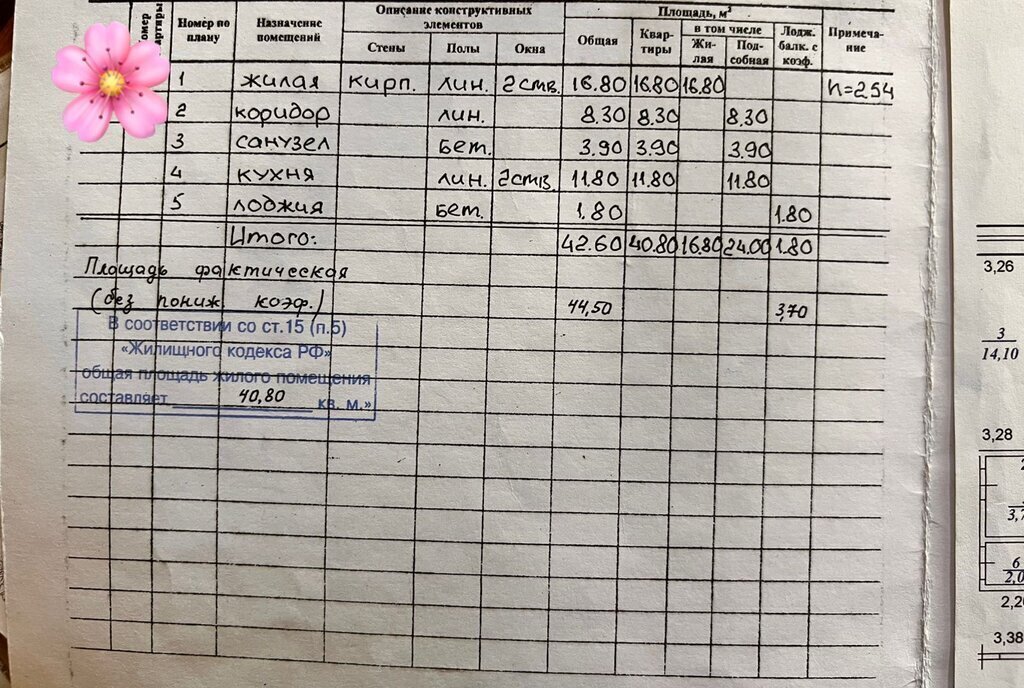 Номер по плану | Назначение помещений | Описание конструктивных элементов | Площадь, м² | Примеча-ние
Стены | Полы | Окна | Общая | Квар-тиры | в том числе | Лодж. балк. с коэф.
Жи-лая | Под-собная
1 жилая кирп. лин. 2ств. 16.80 16.80 16.80 h=254
2 коридор лин. 8.30 8.30 8.30
3 санузел бет. 3.90 3.90 3.90
4 кухня лин. 2ств. 11.80 11.80 11.80
5 лоджия бет. 1.80 1.80
Итого: 42.60 40.80 16.80 24.00 1.80
Площадь фактическая
(без пониж. коэф.) 44,50 3,70
В соответствии со ст.15 (п.5)
«Жилищного кодекса РФ»
общая площадь жилого помещения
составляет 40,80 кв. м.»
3,26
3
14,10
3,28
3,7
6
2,0
3,38